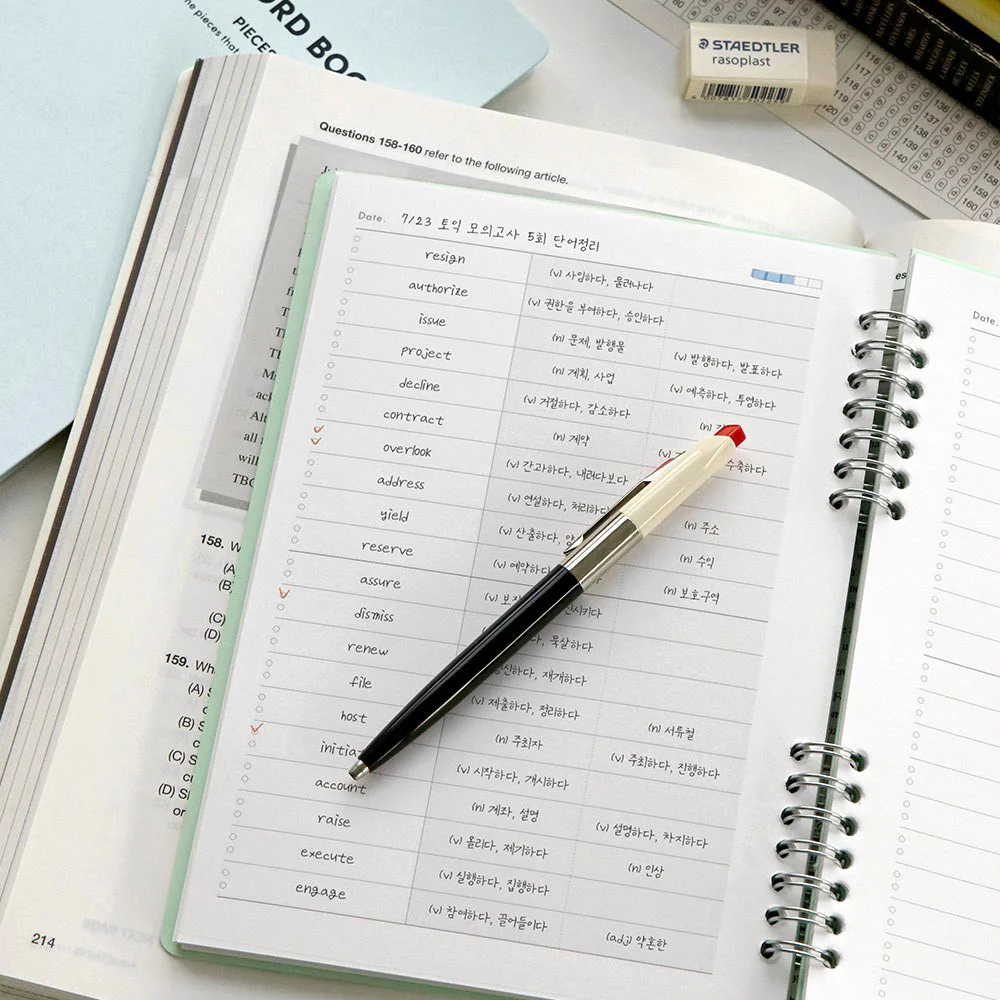 ORD BOO
PIECE
he pieces that
STAEDTLER
rasoplast
116
117
118
119
120
136
137
138
139
140
158
159
160
Questions 158-160 refer to the following article.
Date. 7/23 토익 모의고사 5회 단어정리
resign (v) 사임하다, 물러나다
authorize (v) 권한을 부여하다, 승인하다
issue (n) 문제, 발행물 (v) 발행하다, 발표하다
project (n) 계획, 사업 (v) 예측하다, 투영하다
decline (v) 거절하다, 감소하다 (n)
contract (n) 계약 수축하다
overlook (v) 간과하다, 내려다보다
address (v) 연설하다, 처리하다 (n) 주소
yield (v) 산출하다, (n) 수익
reserve (v) 예약하다 (n) 보호구역
assure (v)
dismiss 묵살하다
renew 갱신하다, 재개하다
file (v) 제출하다, 정리하다 (n) 서류철
host (n) 주최자 (v) 주최하다, 진행하다
initia (v) 시작하다, 개시하다
account (n) 계좌, 설명 (v) 설명하다, 차지하다
raise (v) 올리다, 제기하다 (n) 인상
execute (v) 실행하다, 집행하다
engage (v) 참여하다, 끌어들이다 (adj) 약혼한
158. W
(A)
(B)
(C)
(D)
159. Wh
(A) S
(B) S
(C) S
(D) Si
or
214
Date.